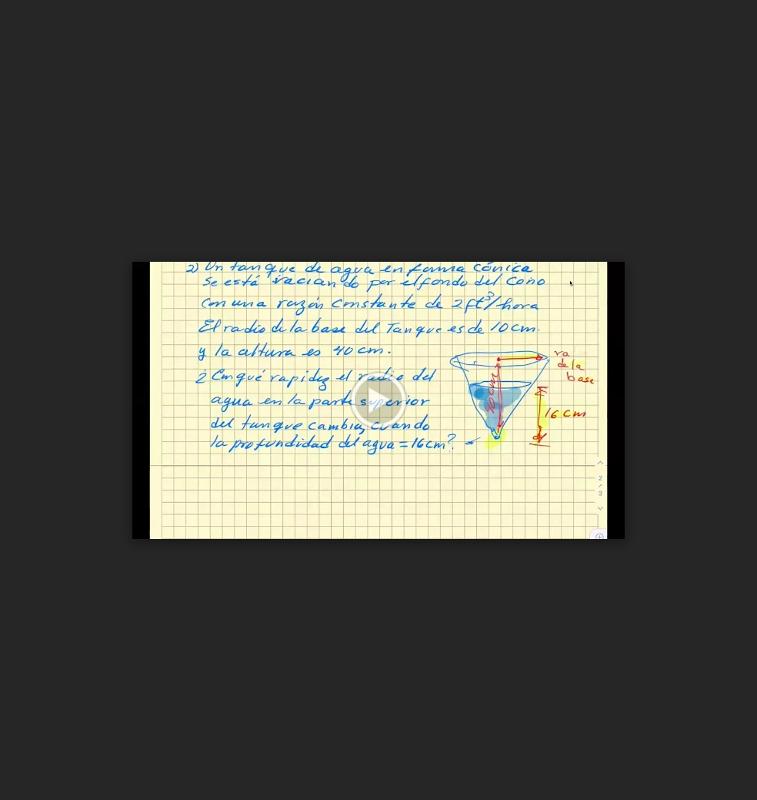 2) Un tanque de agua en forma cónica
se está vaciando por el fondo del cono
con una razón constante de 2 ft³/hora
El radio de la base del Tanque es de 10 cm.
y la altura es 40 cm.
¿ Con qué rapidez el radio del
agua en la parte superior
del tanque cambia, cuando
la profundidad del agua = 16 cm?
ra
de la
base
16 cm
2
3